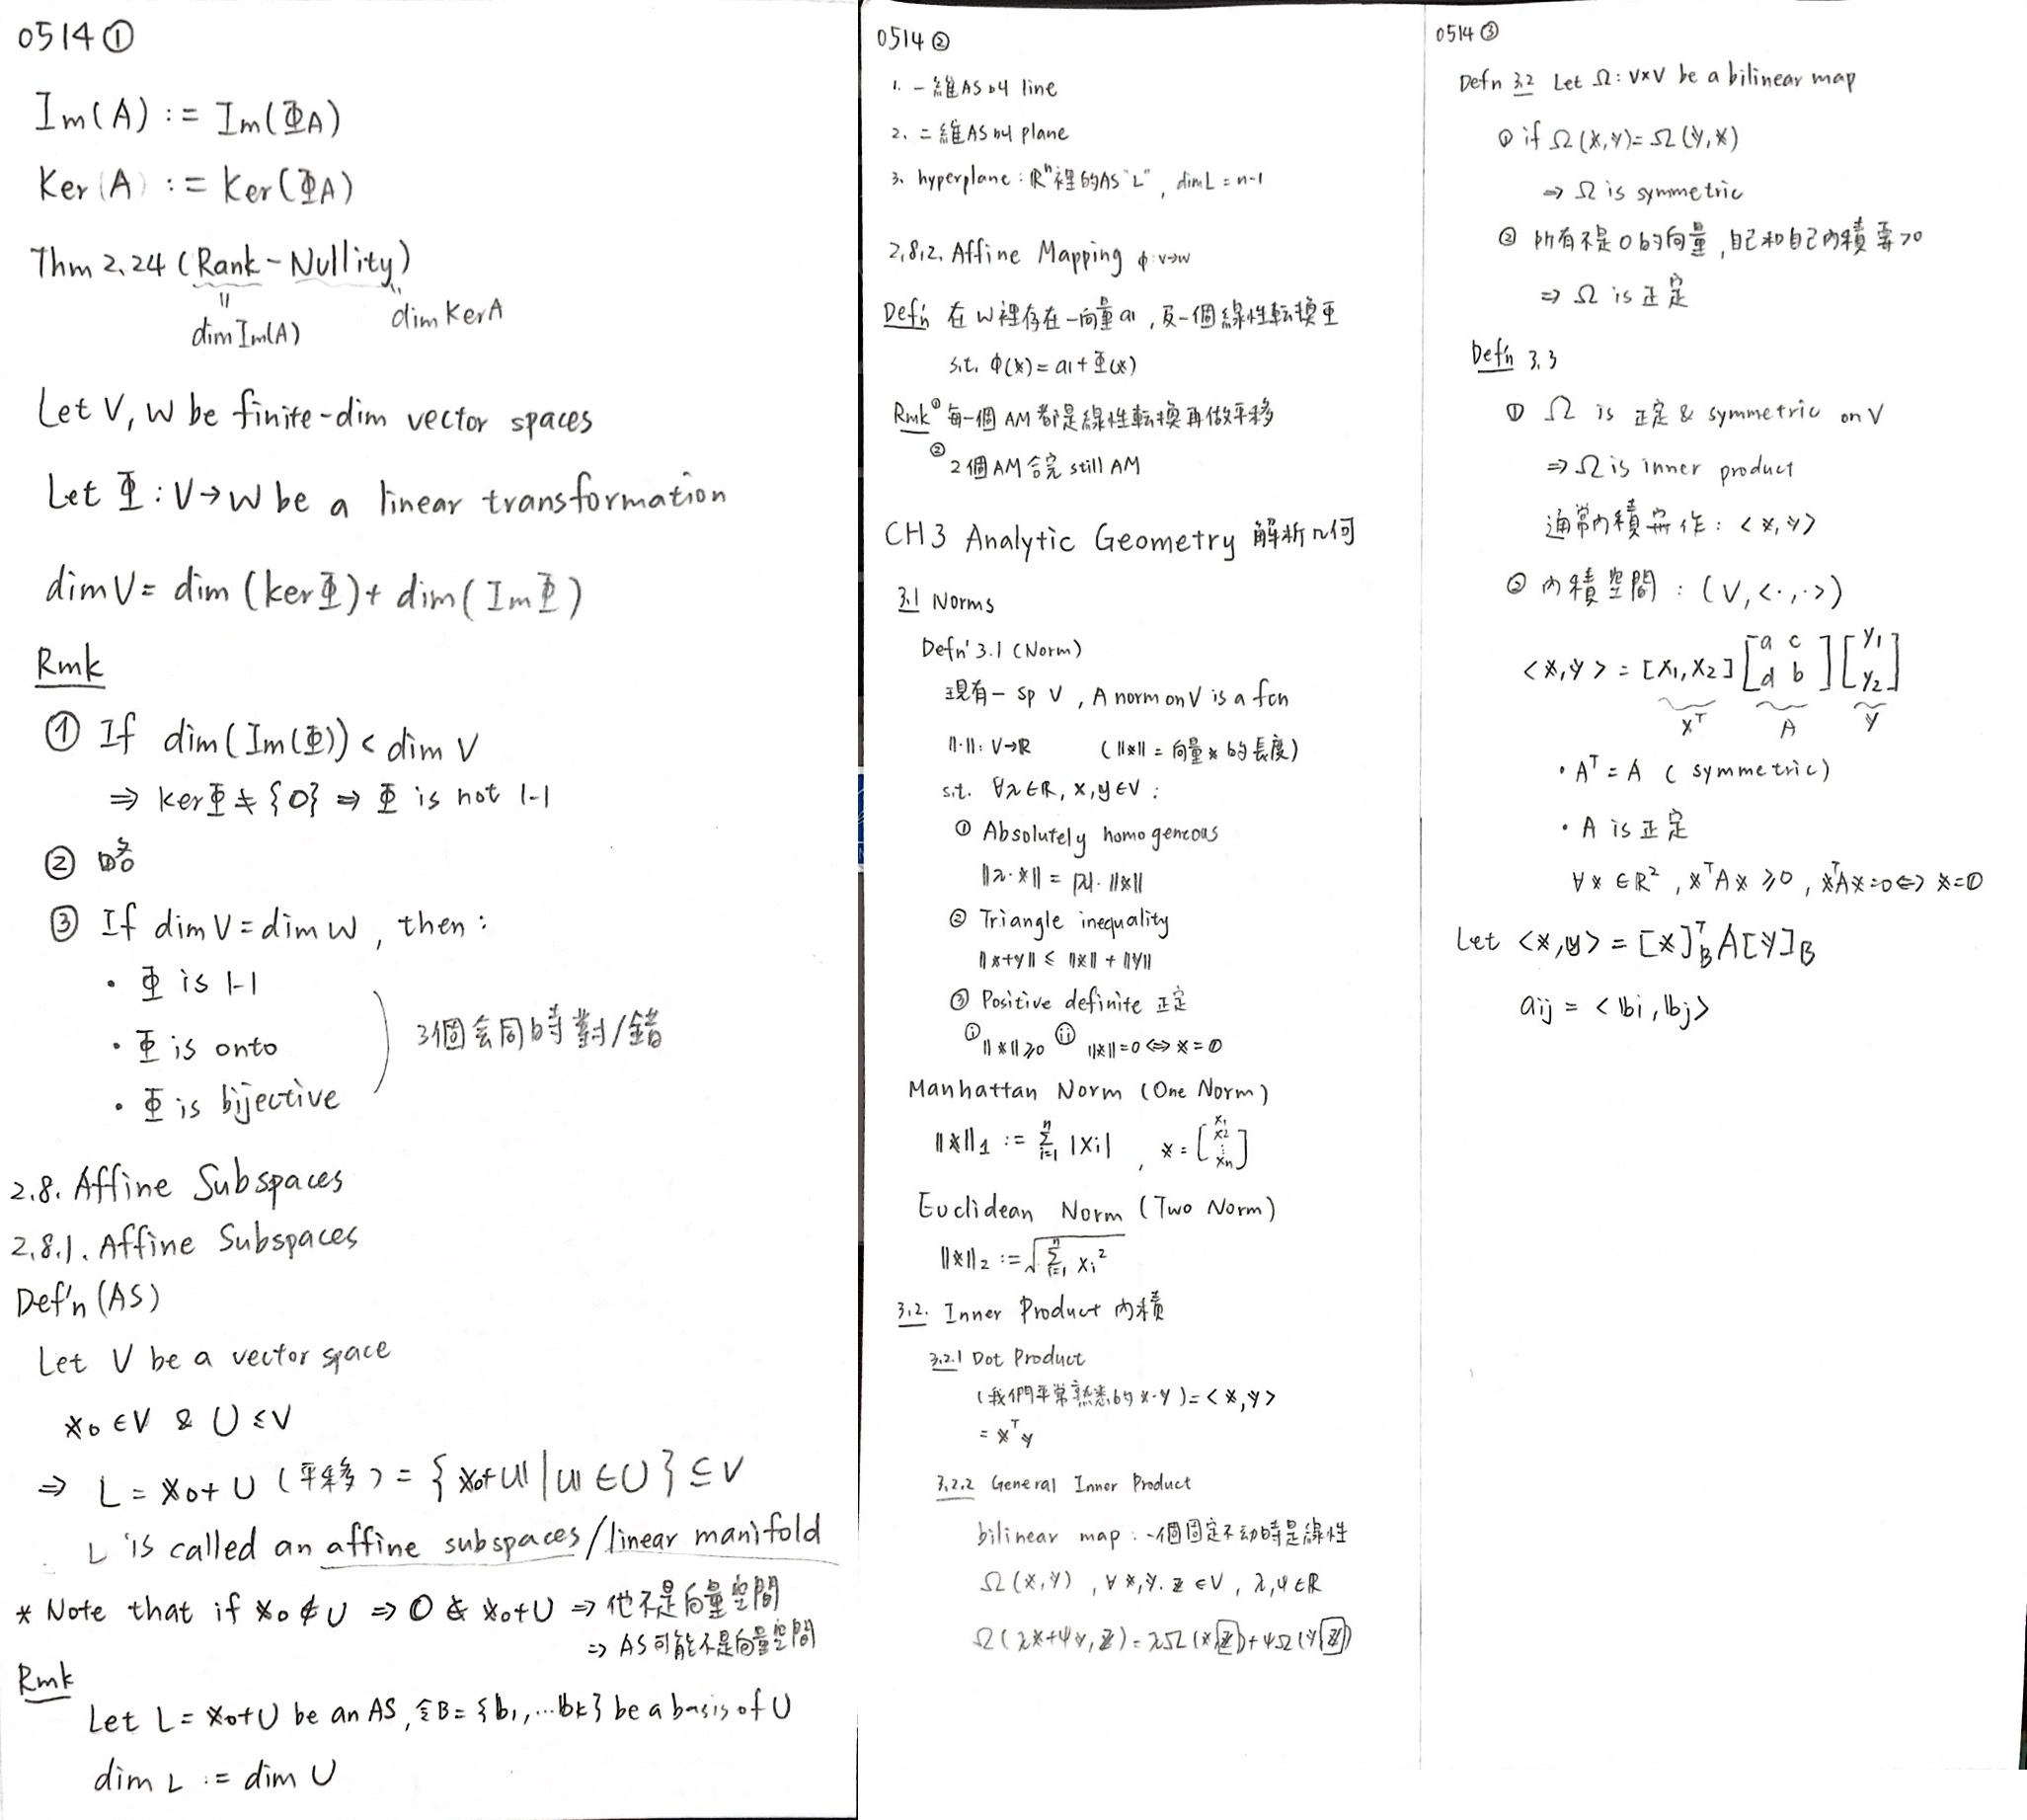 0514①
Im(A) := Im(ΦA)
Ker(A) := Ker(ΦA)
Thm 2.24 (Rank-Nullity)
dim Im(A)
dim Ker A
Let V, W be finite-dim vector spaces
Let Φ: V→W be a linear transformation
dim V = dim (ker Φ) + dim(Im Φ)
Rmk
① If dim(Im(Φ)) < dim V
⇒ ker Φ ≠ {0} ⇒ Φ is not 1-1
② 略
③ If dim V = dim W, then:
• Φ is 1-1
• Φ is onto
• Φ is bijective
3個会同時對/錯
2.8. Affine Subspaces
2.8.1. Affine Subspaces
Def'n (AS)
Let V be a vector space
x₀ ∈ V & U ≤ V
⇒ L = x₀+U (平移) = {x₀+u | u ∈ U} ⊆ V
L is called an affine subspaces/linear manifold
* Note that if x₀ ∉ U ⇒ 0 ∉ x₀+U ⇒ 他不是向量空間
⇒ AS可能不是向量空間
Rmk
Let L = x₀+U be an AS, 令B = {b₁,…bₖ} be a basis of U
dim L := dim U
0514②
1. 一維AS叫 line
2. 二維AS叫 plane
3. hyperplane: ℝⁿ裡的AS "L", dim L = n-1
2.8.2. Affine Mapping φ: V→W
Def'n 在W裡存在一向量a, 及一個線性転換Φ
s.t. φ(x) = a + Φ(x)
Rmk ① 每一個AM都是線性転換再做平移
② 2個AM合完 still AM
CH3 Analytic Geometry 解析几何
3.1 Norms
Defn' 3.1 (Norm)
現有一 sp V, A norm on V is a fcn
‖·‖: V→ℝ (‖x‖ = 向量x的長度)
s.t. ∀λ∈ℝ, x,y∈V:
① Absolutely homogeneous
‖λ·x‖ = |λ|·‖x‖
② Triangle inequality
‖x+y‖ ≤ ‖x‖ + ‖y‖
③ Positive definite 正定
ⓘ ‖x‖ ≥ 0 ⓘⓘ ‖x‖=0 ⇔ x = 0
Manhattan Norm (One Norm)
‖x‖₁ := Σⁿᵢ₌₁ |xᵢ|, x = [x₁ x₂ ⋮ xₙ]
Euclidean Norm (Two Norm)
‖x‖₂ := √Σⁿᵢ₌₁ xᵢ²
3.2. Inner Product 內積
3.2.1 Dot Product
(我們平常熟悉的 x·y) = <x,y>
= xᵀy
3.2.2 General Inner Product
bilinear map: 一個固定不动時是線性
Ω(x,y), ∀x,y,z ∈V, λ,ψ∈ℝ
Ω(λx+ψy,z) = λΩ(x,z)+ψΩ(y,z)
0514③
Defn 3.2 Let Ω: V×V be a bilinear map
① if Ω(x,y) = Ω(y,x)
⇒ Ω is symmetric
② 所有不是0的向量, 自己和自己內積要>0
⇒ Ω is 正定
Def'n 3.3
① Ω is 正定 & symmetric on V
⇒ Ω is inner product
通常內積寫作: <x,y>
② 內積空間: (V, <·,·>)
<x,y> = [x₁,x₂] [a c d b] [y₁ y₂]
xᵀ A y
• Aᵀ = A (symmetric)
• A is 正定
∀x ∈ℝ², xᵀAx ≥0, xᵀAx=0 ⇔ x=0
Let <x,y> = [x]ᵀB A[y]B
aij = <bi, bj>